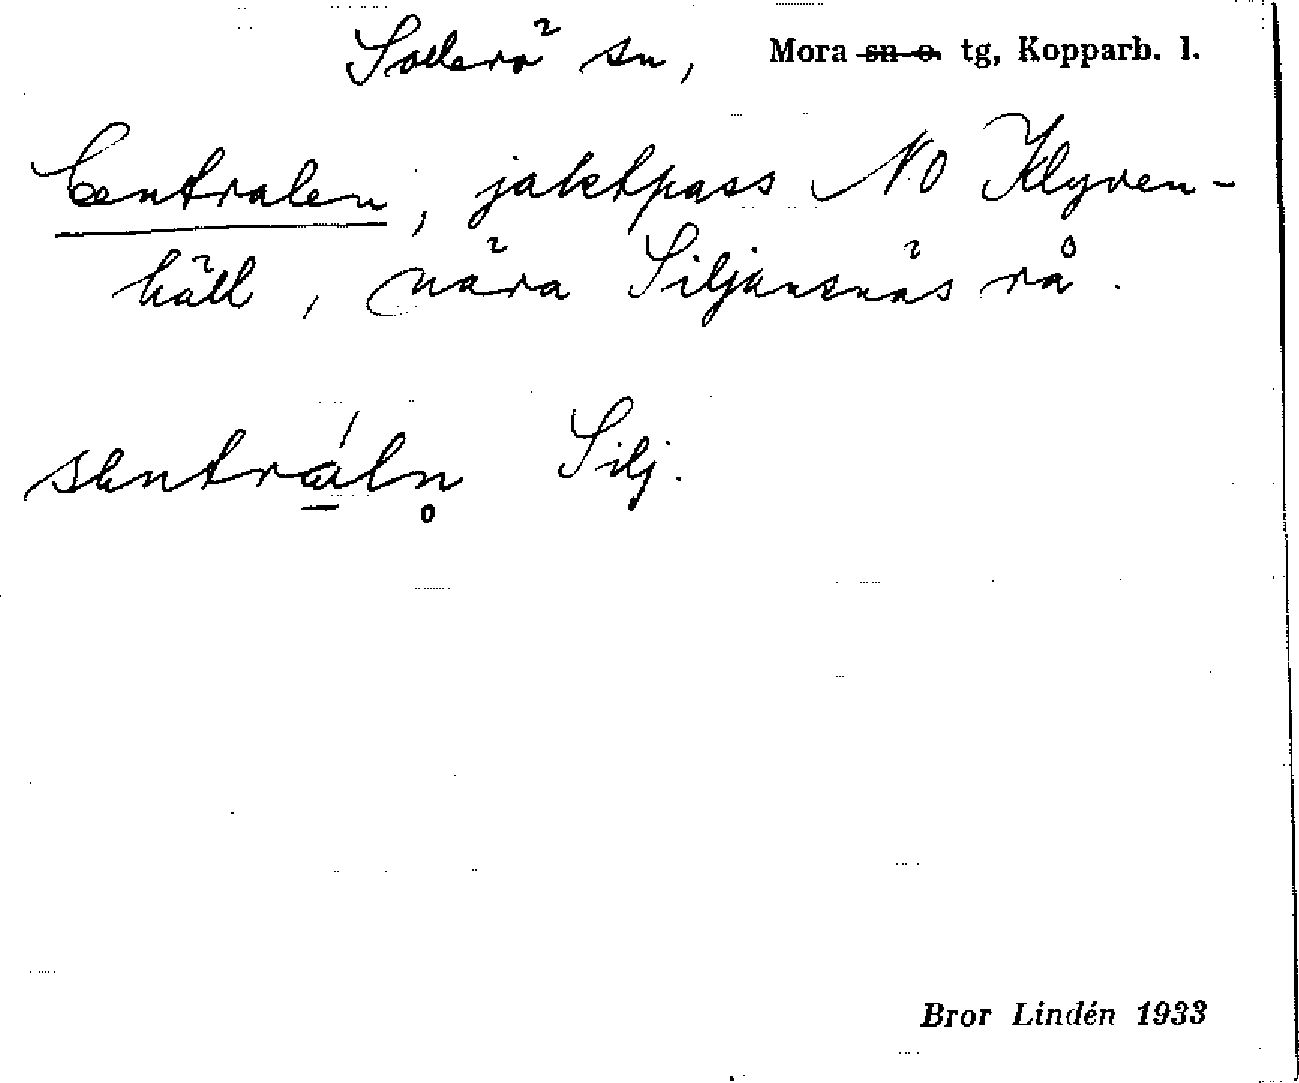 Sollerö sn, Mora sn o. tg, Kopparb. l.
Centralen, jaktpass NO Klyven-
häll, nära Siljansnäs rå.
sentráln̥ Silj.
Bror Lindén 1933